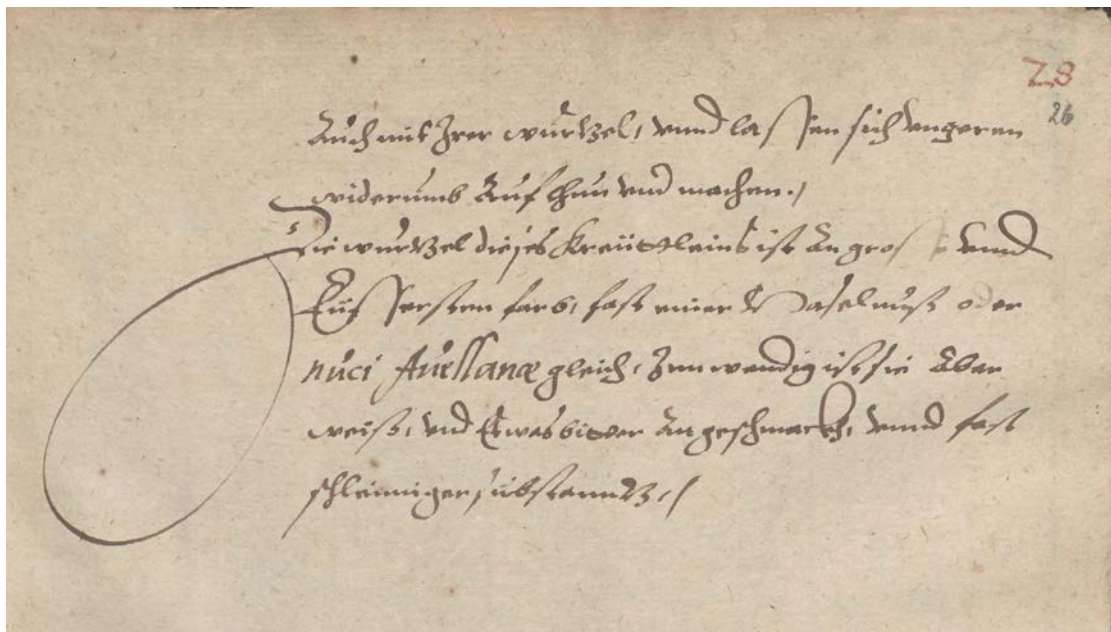 28
26
Auch mit Irer wurtzel, vnnd lassen sich vngeren
widerumb Aufthun vnd machen./
Die wurtzel dieses Kreüttleins ist An gross vnnd
Eüssersten farb, fast einer Haselnuss oder
nuci Auellanæ gleich, Innwendig ist sie Aber
weiss, vnd Etwas bitter Am geschmackh, vnnd fast
schleimiger substanntz,/